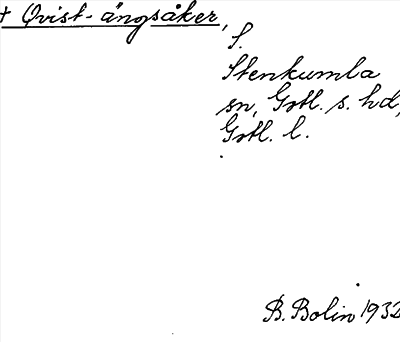 + Qvist-ängsåker,
S.
Stenkumla
sn, Gotl. s. hd,
Gotl. l.
B. Bolin 1932